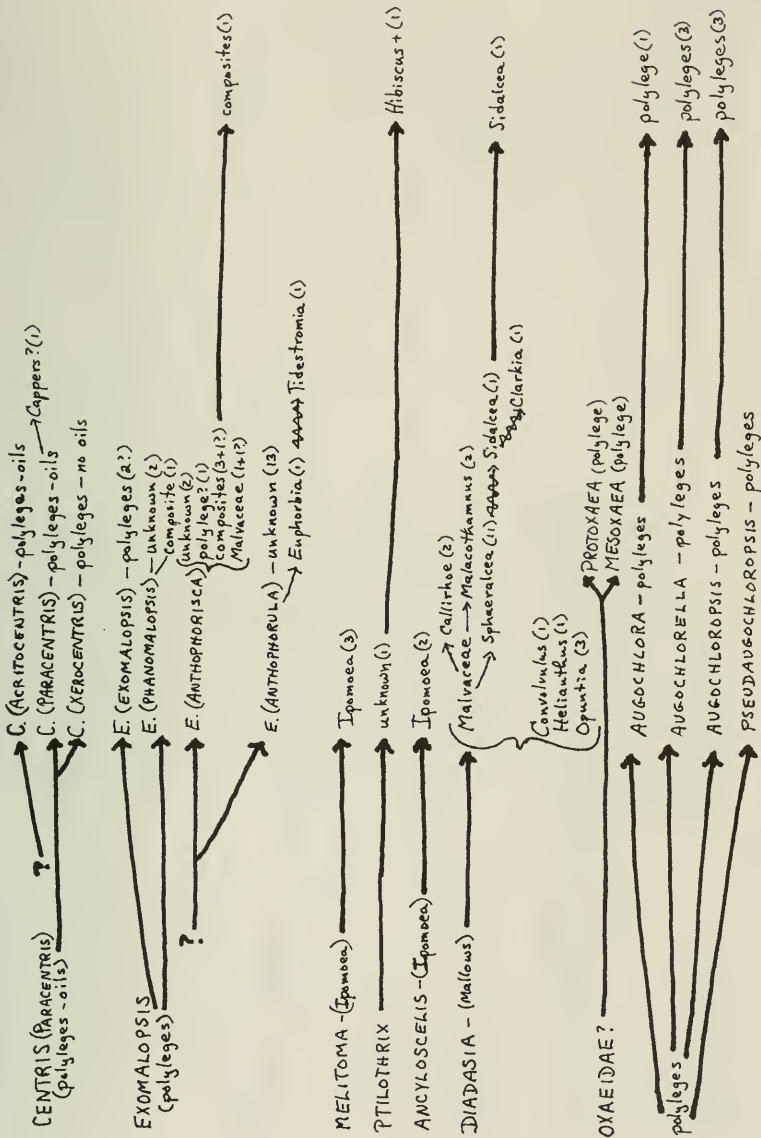 CENTRIS (PARACENTRIS)
(polyleges - oils)
?
C. (ACRITOCENTRIS) - polyleges - oils
C. (PARACENTRIS) - polyleges - oils
Cappers? (1)
C. (XEROCENTRIS) - polyleges - no oils
EXOMALOPSIS
(polyleges)
E. (EXOMALOPSIS) - polyleges (2?)
E. (PHANOMALOPSIS) - unknown (2)
Composite (1)
?
E. (ANTHOPHORISCA)
unknown (2)
polylege? (1)
Composites (3+1?)
Malvaceae (1+1?)
composites (1)
E. (ANTHOPHORULA) - unknown (13)
Euphorbia (1)
Tidestromia (1)
MELITOMA - (Ipomoea)
Ipomoea (3)
PTILOTHRIX
unknown (1)
Hibiscus + (1)
ANCYLOSCELIS - (Ipomoea)
Ipomoea (2)
DIADASIA - (Mallows)
Callirhoe (2)
Malvaceae
Malacothamnus (2)
Sphaeralcea (11)
Sidalcea (1)
Sidalcea (1)
Clarkia (1)
Convolvulus (1)
Helianthus (1)
Opuntia (3)
OXAEIDAE?
PROTOXAEA (polylege)
MESOXAEA (polylege)
polyleges
AUGOCHLORA - polyleges
polylege (1)
AUGOCHLORELLA - polyleges
polyleges (3)
AUGOCHLOROPSIS - polyleges
polyleges (3)
PSEUDAUGOCHLOROPSIS - polyleges